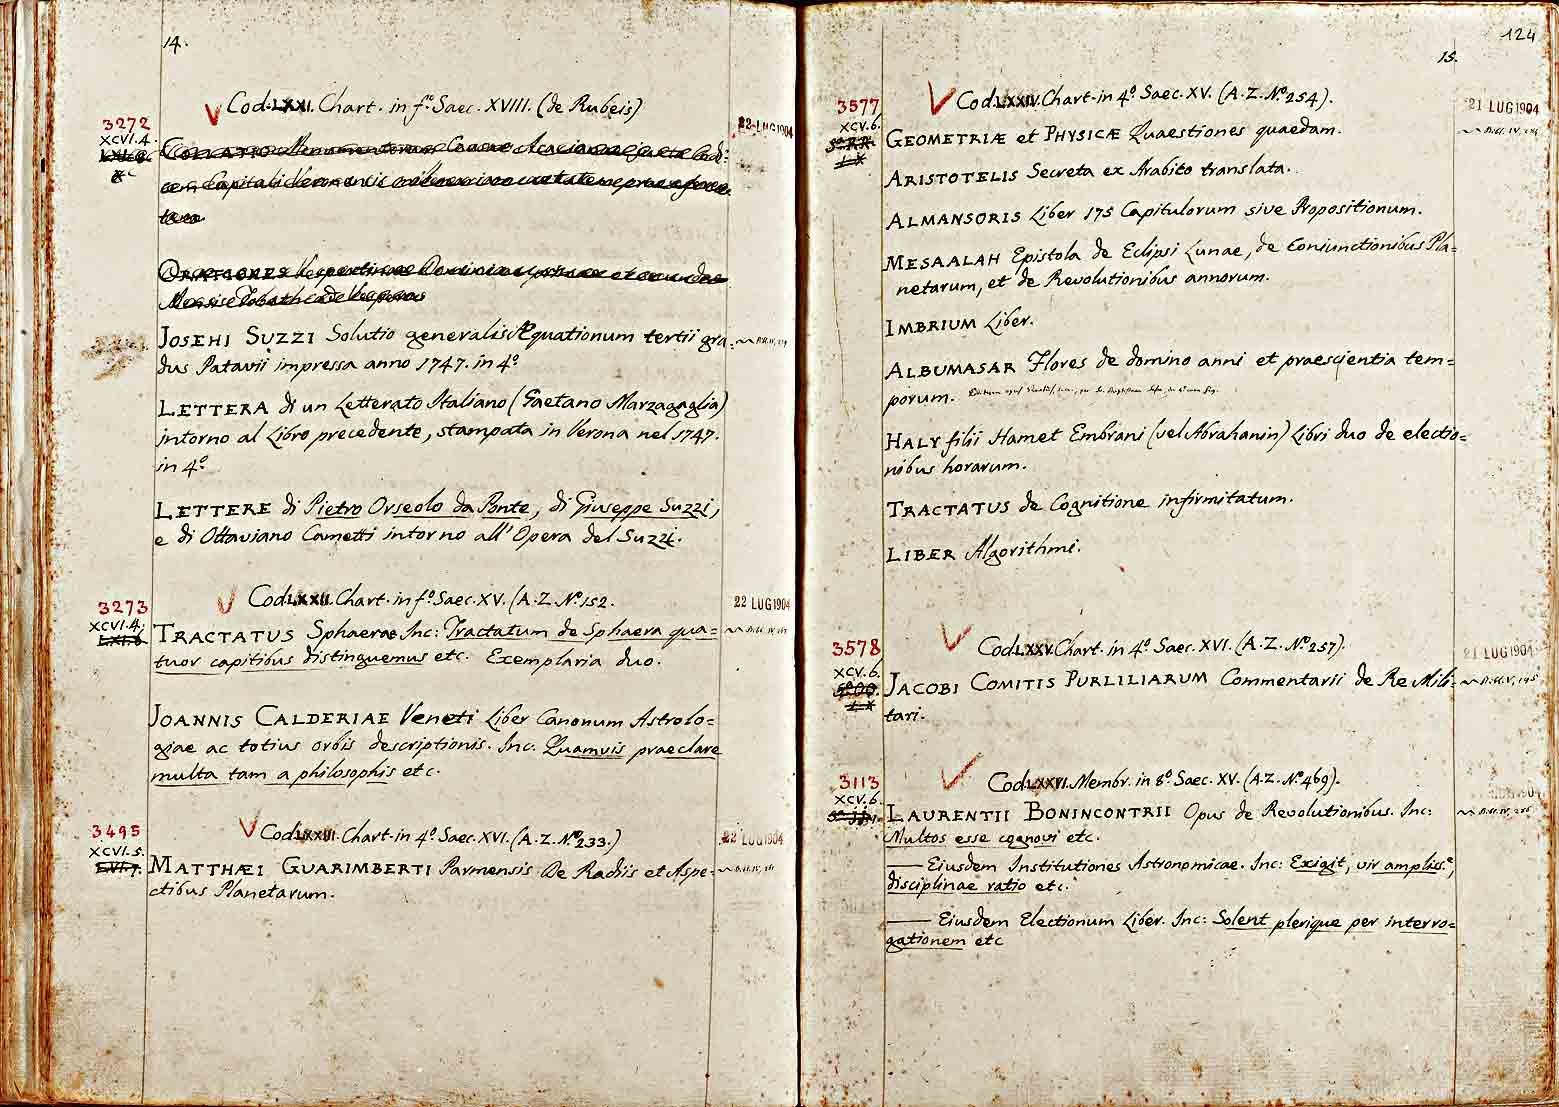 14.
Cod. LXXI. Chart. in fº Saec. XVIII. (de Rubeis)
3272
XCVI.4.
22 LUG 1904
JOSEHI SUZZI Solutio generalis Æquationum tertii gra=
dus Patavii impressa anno 1747. in 4º
LETTERA di un Letterato Italiano (Gaetano Marzagaglia)
intorno al Libro precedente, stampata in Verona nel 1747.
in 4º
LETTERE di Pietro Orseolo da Ponte, di Giuseppe Suzzi,
e di Ottaviano Cametti intorno all' Opera del Suzzi.
Cod. LXXII. Chart. in fº Saec. XV. (A.Z. Nº 152.
3273
XCVI.4.
22 LUG 1904
TRACTATUS Sphaerae Inc: Tractatum de Sphaera qua=
tuor capitibus distinguemus etc. Exemplaria duo.
JOANNIS CALDERIAE Veneti Liber Canonum Astrolo=
giae ac totius orbis descriptionis. Inc. Quamvis praeclare
multa tam a philosophis etc.
Cod. LXXIII. Chart. in 4º Saec. XVI. (A.Z. Nº 233.)
3495
XCVI.5.
22 LUG 1904
MATTHÆI GUARIMBERTI Parmensis De Radiis et Aspe=
ctibus Planetarum.
124
15.
Cod. LXXIV. Chart. in 4º Saec. XV. (A.Z. Nº 254).
3577
XCV.6.
21 LUG 1904
GEOMETRIÆ et PHYSICÆ Quaestiones quaedam.
ARISTOTELIS Secreta ex Arabico translata.
ALMANSORIS Liber 175 Capitulorum sive Propositionum.
MESAALAH Epistola de Eclipsi Lunae, de Coniunctionibus Pla=
netarum, et de Revolutionibus annorum.
IMBRIUM Liber.
ALBUMASAR Flores de domino anni et praescientia tem=
porum.
HALY filii Hamet Embrani (vel Abrahanin) Libri duo de electio=
nibus horarum.
TRACTATUS de Cognitione infirmitatum.
LIBER Algorithmi.
Cod. LXXV. Chart. in 4º Saec. XVI. (A.Z. Nº 257).
3578
XCV.6.
21 LUG 1904
JACOBI COMITIS PURLILIARUM Commentarii de Re Mili=
tari.
Cod. LXXVI. Membr. in 8º Saec. XV. (A.Z. Nº 469).
3113
XCV.6.
LAURENTII BONINCONTRII Opus de Revolutionibus. Inc:
Multos esse cognovi etc.
—— Eiusdem Institutiones Astronomicae. Inc: Exigit, vir ampliss.e,
disciplinae ratio etc.
—— Eiusdem Electionum Liber. Inc: Solent plerique per interro=
gationem etc